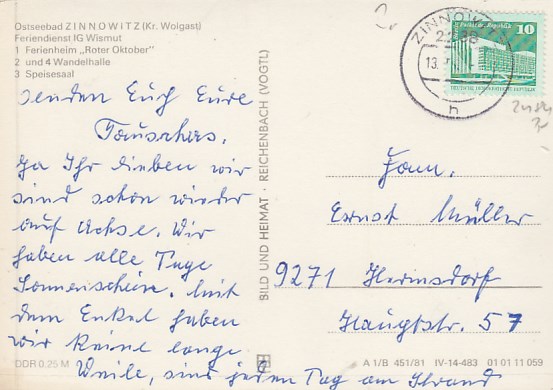 Ostseebad ZINNOWITZ (Kr. Wolgast)
Feriendienst IG Wismut
1 Ferienheim „Roter Oktober“
2 und 4 Wandelhalle
3 Speisesaal
senden Euch Eure
Tauschers.
Ja Ihr Lieben wir
sind schon wieder
auf Achse. Wir
haben alle Tage
Sonnenschein. Mit
dem Enkel haben
wir keine lange
Weile, sind jeden Tag am Strand
DDR 0.25 M
BILD UND HEIMAT · REICHENBACH (VOGTL)
ZINNOWITZ
2238
13.
h
10
DEUTSCHE DEMOKRATISCHE REPUBLIK
Fam.
Ernst Müller
9271 Hermsdorf
Hauptstr. 57
A 1/B 451/81 IV-14-483 01 01 11 059